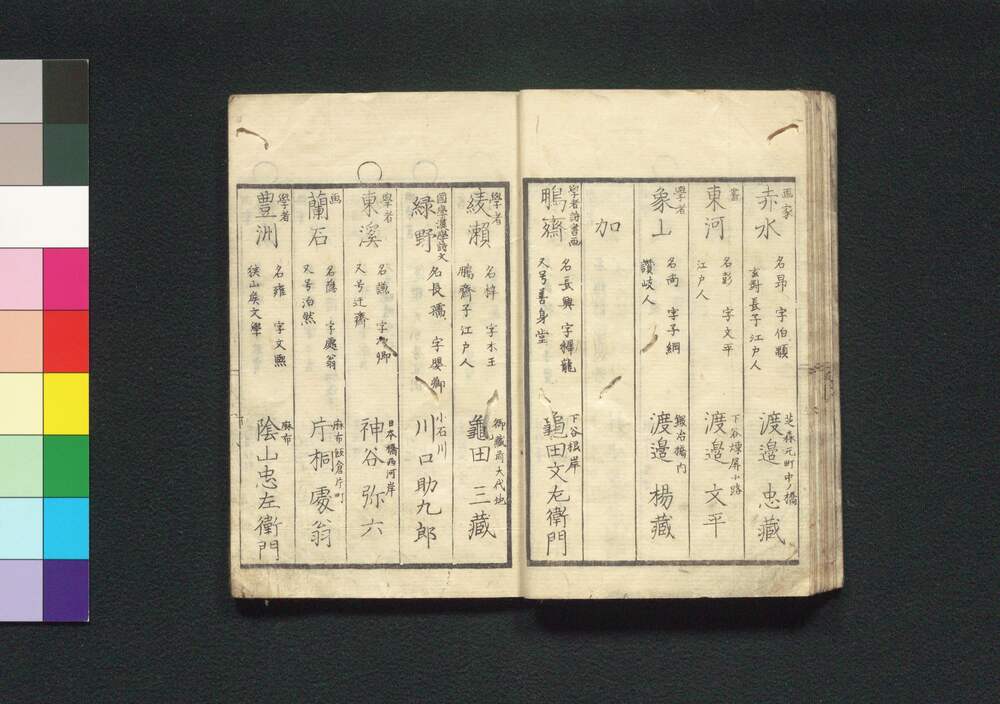 画家
赤水
名昂 字伯顒
玄對長子江戸人
芝森元町中ノ橋
渡邉 忠藏
書
東河
名彭 字文平
江戸人
下谷煉屏小路
渡邉 文平
學者
象山
名尚 字子綱
讃岐人
鍛冶橋内
渡邉 楊藏
加
學者詩書画
鵬齋
名長興 字穉龍
又号善身堂
下谷根岸
龜田文左衛門
學者
綾瀬
名梓 字木王
鵬齋子江戸人
御藏前大代地
龜田 三藏
國學漢學詩文
緑野
名長孺 字嬰卿
小石川
川口助九郎
學者
東溪
名謙
又号迂齋
日本橋西河岸
神谷弥六
画
蘭石
名蔭 字處翁
又号泊然
麻布飯倉片町
片桐處翁
學者
豊洲
名雍 字文熈
狭山矦文學
麻布
陰山忠左衛門